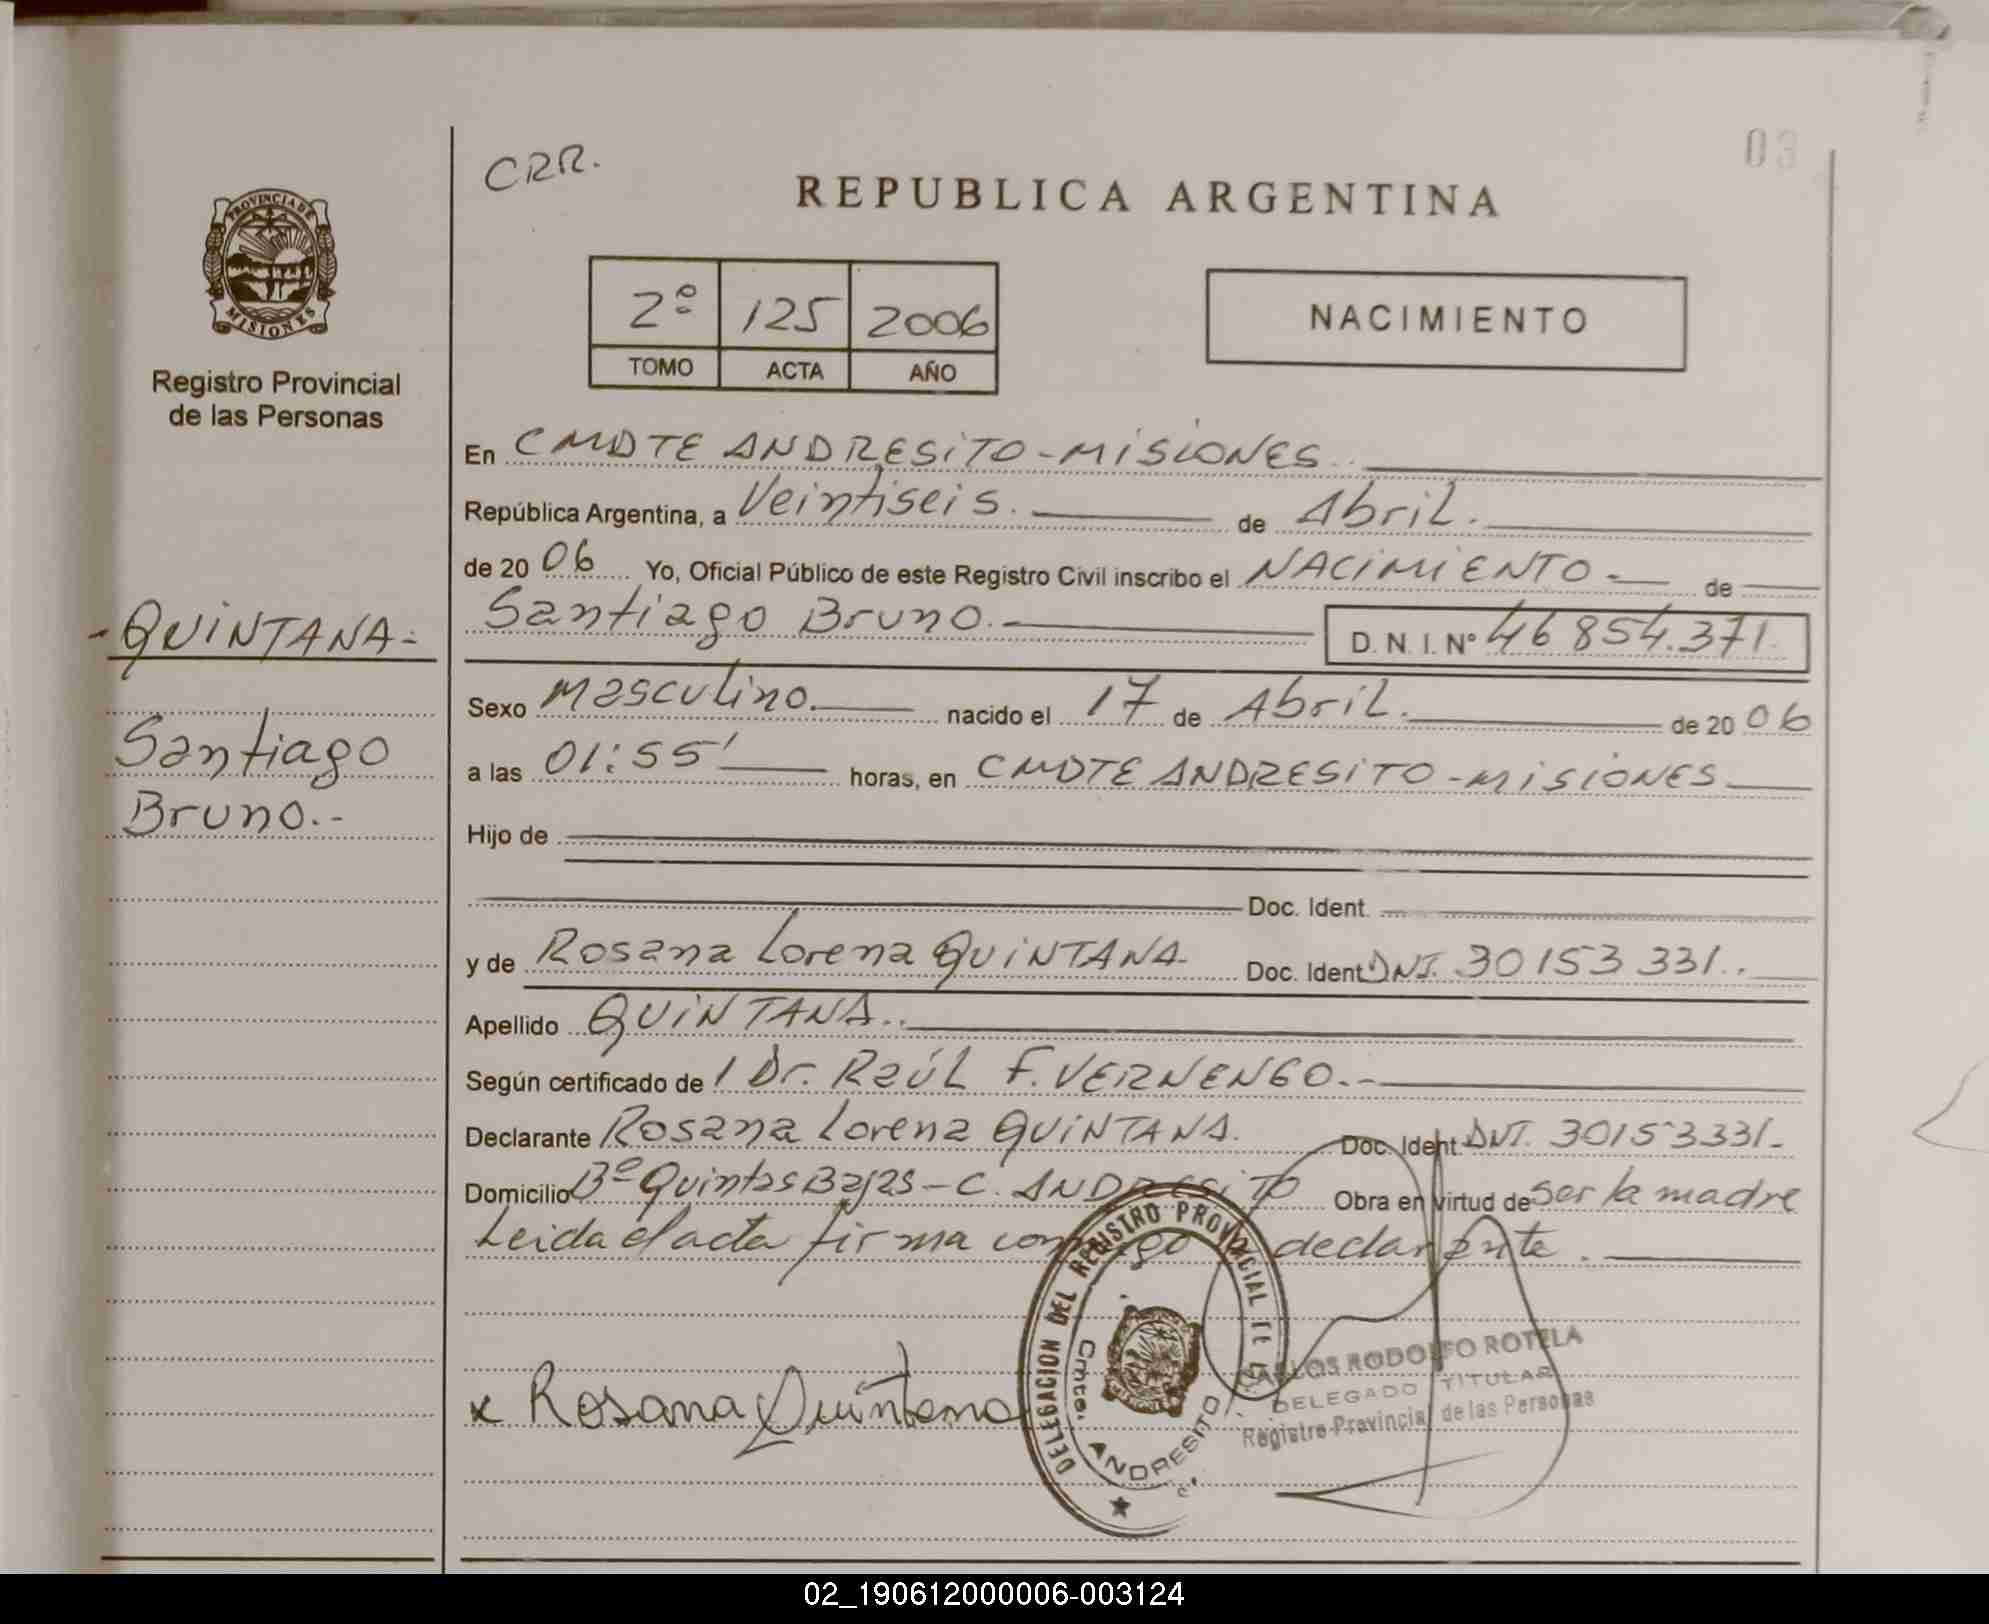 CRR.
03
REPUBLICA ARGENTINA
PROVINCIA DE
MISIONES
Registro Provincial
de las Personas
2º 125 2006
TOMO ACTA AÑO
NACIMIENTO
En CMDTE ANDRESITO-MISIONES.
República Argentina, a Veintiseis. de Abril.
de 20 06 Yo, Oficial Público de este Registro Civil inscribo el NACIMIENTO. de
Santiago Bruno. D. N. I. Nº 46 854.371.
Sexo Masculino. nacido el 17 de Abril. de 20 06
a las 01:55' horas, en CMDTE ANDRESITO-MISIONES
Hijo de
Doc. Ident.
y de Rosana Lorena QUINTANA. Doc. Ident. DNI. 30153 331..
Apellido QUINTANA..
Según certificado de 1 Dr. Raúl F. VERNENGO.-
Declarante Rosana Lorena QUINTANA. Doc. Ident. DNI. 30153331.
Domicilio Bº Quintas Bajas - C. ANDRESITO Obra en virtud de ser la madre
Leida el acta firma conmigo declarante.
-QUINTANA-
Santiago
Bruno.-
x Rosana Quintana
DELEGACION DEL REGISTRO PROVINCIAL DE
Cmte. ANDRESITO
CARLOS RODOLFO ROTELA
DELEGADO TITULAR
Registro Provincial de las Personas
02_190612000006-003124